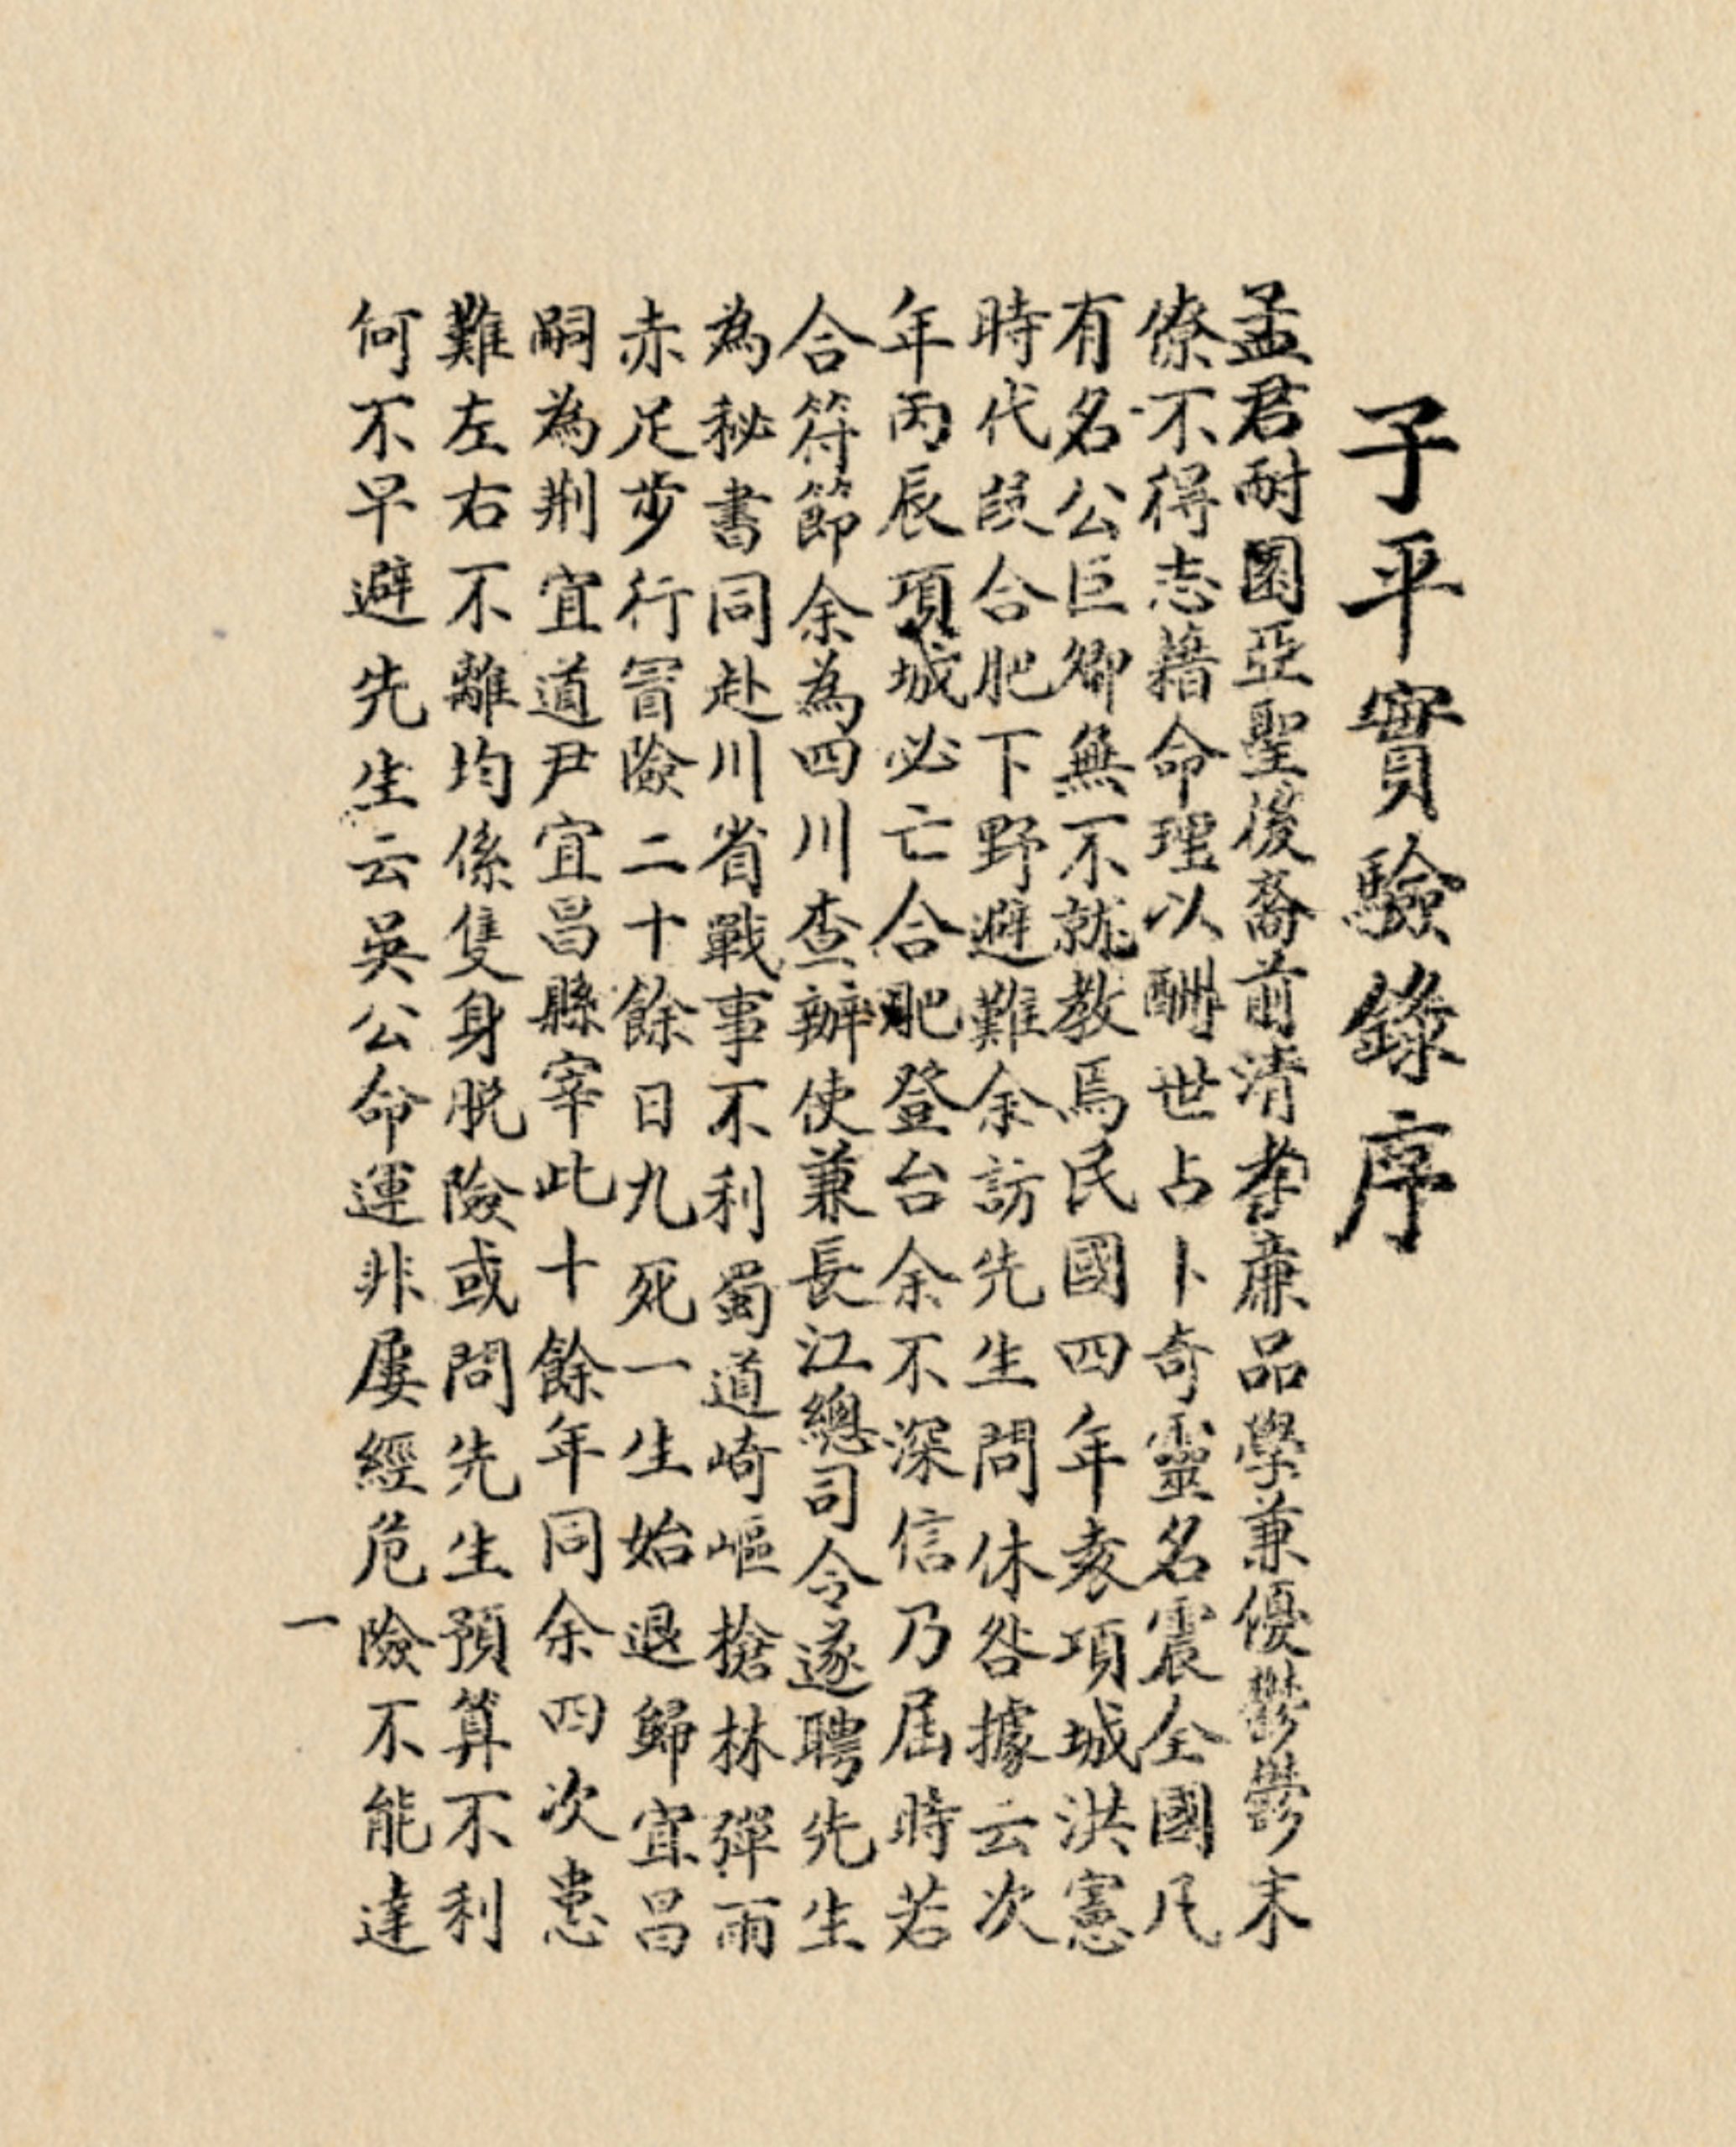 子平實驗錄序
孟君耐園亞聖後裔前清孝廉品學兼優鬱鬱末
僚不得志藉命理以酬世占卜奇靈名震全國凡
有名公巨卿無不就教焉民國四年袁項城洪憲
時代段合肥下野避難余訪先生問休咎據云次
年丙辰項城必亡合肥登台余不深信乃屆時若
合符節余為四川查辦使兼長江總司令遂聘先生
為秘書同赴川省戰事不利蜀道崎嶇槍林彈雨
赤足步行冒險二十餘日九死一生始退歸宜昌
嗣為荆宜道尹宜昌縣宰此十餘年同余四次患
難左右不離均係隻身脫險或問先生預算不利
何不早避先生云吳公命運非屢經危險不能達
一